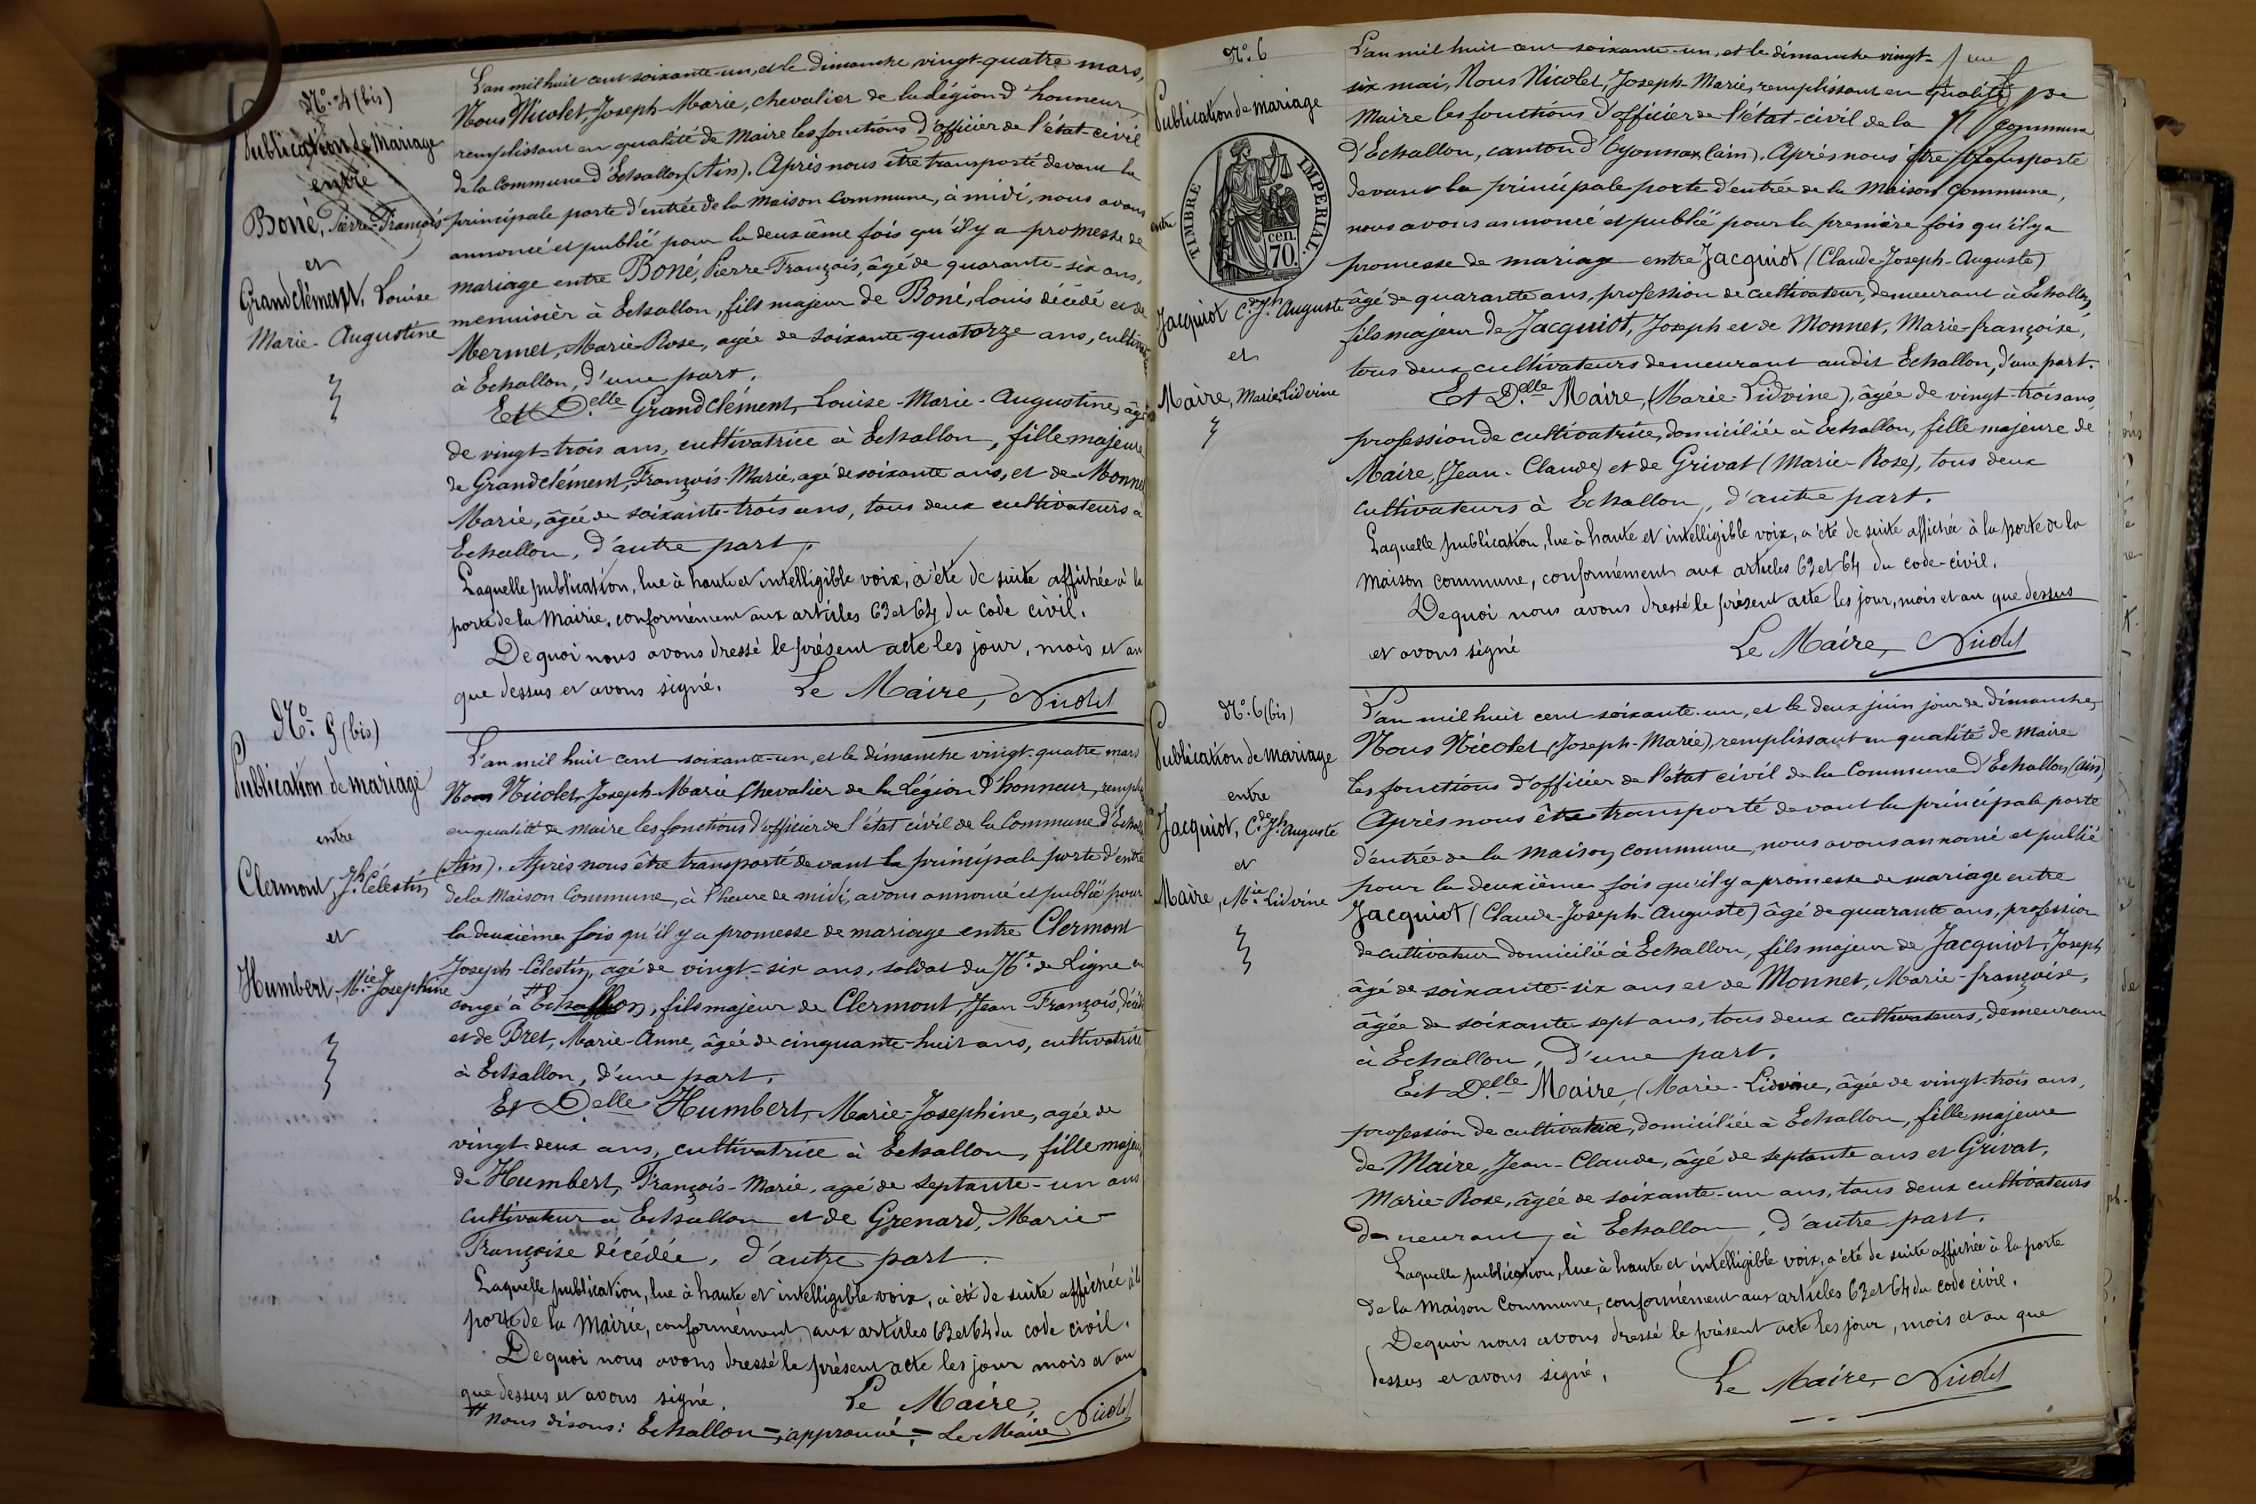 N.o 4 (bis)
Publication de Mariage
entre
Boné, Pierre-François
et
Grandclément, Louise
Marie-Augustine
L'an mil huit cent soixante-un, et le dimanche vingt-quatre mars,
Nous Nicolet, Joseph-Marie, chevalier de la Légion d'honneur
remplissant en qualité de Maire les fonctions d'officier de l'état-civil
de la Commune d'Echallon, (Ain). Après nous être transporté devant la
principale porte d'entrée de la Maison Commune, à midi, nous avons
annoncé et publié pour la deuxième fois qu'il y a promesse de
mariage entre Boné, Pierre-François, âgé de quarante-six ans,
menuisier à Echallon, fils majeur de Boné, Louis décédé et de
Mermet, Marie-Rose, agée de soixante-quatorze ans,
à Echallon, d'une part.
Et D.elle Grandclément, Louise-Marie-Augustine, âgée
de vingt-trois ans, cultivatrice à Echallon, fille majeure
de Grandclément, François-Marie, agé de soixante ans, et de Monnet
Marie, âgée de soixante-trois ans, tous deux cultivateurs à
Echallon, d'autre part.
Laquelle publication, lue à haute et intelligible voix, a été de suite affichée à la
porte de la Mairie, conformément aux articles 63 et 64 du code civil.
De quoi nous avons dressé le présent acte les jour, mois et an
que dessus et avons signé. Le Maire, Nicolet
N.o 5 (bis)
Publication de mariage
entre
Clermont, J.h Célestin
et
Humbert M.ie Josephine
L'an mil huit cent soixante-un, et le dimanche vingt-quatre mars
Nous Nicolet, Joseph-Marie Chevalier de la Légion d'honneur,
en qualité de maire les fonctions d'officier de l'état civil de la Commune d'Echallon
(Ain). Après nous être transporté devant la principale porte d'entrée
de la Maison Commune, à l'heure de midi, avons annoncé et publié pour
la deuxième fois qu'il y a promesse de mariage entre Clermont
Joseph-Célestin, agé de vingt-six ans, soldat du 76.e de Ligne en
congé à # Echallon, fils majeur de Clermont, Jean-François, décédé
et de Bret, Marie-Anne, âgée de cinquante-huit ans, cultivatrice
à Echallon, d'une part.
Et D.elle Humbert, Marie-Josephine, agée de
vingt-deux ans, cultivatrice à Echallon, fille majeure
de Humbert, François-Marie, agé de septante-un ans
cultivateur à Echallon et de Grenard, Marie-
Françoise décédée, d'autre part.
Laquelle publication, lue à haute et intelligible voix, a été de suite affichée à la
porte de la Mairie, conformément aux articles 63 et 64 du code civil.
De quoi nous avons dressé le présent acte les jour mois et an
que dessus et avons signé. Le Maire,
# nous disons: Echallon =, approuvé, = Le Maire Nicolet
N.o 6
Publication de mariage
entre
TIMBRE IMPERIAL.
70.
cen.
Jacquiot C.de J.h Auguste
et
Maire, Marie Lidvine
L'an mil huit cent soixante-un, et le dimanche vingt-
six mai, Nous Nicolet, Joseph-Marie, remplissant en qualité de
Maire les fonctions d'officier de l'état-civil de la commune
d'Echallon, canton d'Oyonnax (ain). Après nous être transporté
devant la principale porte d'entrée de la Maison Commune,
nous avons annoncé et publié pour la première fois qu'il y a
promesse de mariage entre Jacquiot (Claude-Joseph-Auguste)
âgé de quarante ans, profession de cultivateur, demeurant à Echallon,
fils majeur de Jacquiot, Joseph et de Monnet, Marie-françoise,
tous deux cultivateurs demeurant audit Echallon, d'une part.
Et D.elle Maire, (Marie-Lidvine), âgée de vingt-trois ans,
profession de cultivatrice, domiciliée à Echallon, fille majeure de
Maire, (Jean-Claude) et de Grivat (Marie-Rose), tous deux
cultivateurs à Echallon, d'autre part.
Laquelle publication, lue à haute et intelligible voix, a été de suite affichée à la porte de la
Maison commune, conformément aux articles 63 et 64 du code-civil.
De quoi nous avons dressé le présent acte les jour, mois et an que dessus
et avons signé Le Maire, Nicolet
N.o 6 (bis)
Publication de mariage
entre
Jacquiot, C.de J.h Auguste
et
Maire, M.ie Lidvine
L'an mil huit cent soixante-un, et le deux juin jour de dimanche,
Nous Nicolet (Joseph-Marie), remplissant en qualité de maire
les fonctions d'officier de l'état civil de la Commune d'Echallon, (ain)
Après nous être transporté devant la principale porte
d'entrée de la Maison commune, nous avons annoncé et publié
pour la deuxième fois qu'il y a promesse de mariage entre
Jacquiot (Claude-Joseph-Auguste) âgé de quarante ans, profession
de cultivateur domicilié à Echallon, fils majeur de Jacquiot, Joseph,
âgé de soixante-six ans et de Monnet, Marie-françoise,
âgée de soixante-sept ans, tous deux cultivateurs, demeurant
à Echallon, d'une part.
Et D.elle Maire, (Marie-Lidvine, âgée de vingt-trois ans,
profession de cultivatrice, domiciliée à Echallon, fille majeure
de Maire, Jean-Claude, âgé de septante ans et Grivat,
Marie-Rose, âgée de soixante-un ans, tous deux cultivateurs
demeurant à Echallon, d'autre part.
Laquelle publication, lue à haute et intelligible voix, a été de suite affichée à la porte
de la Maison Commune, conformément aux articles 63 et 64 du code civil.
De quoi nous avons dressé le présent acte les jour, mois et an que
dessus et avons signé, Le Maire, Nicolet